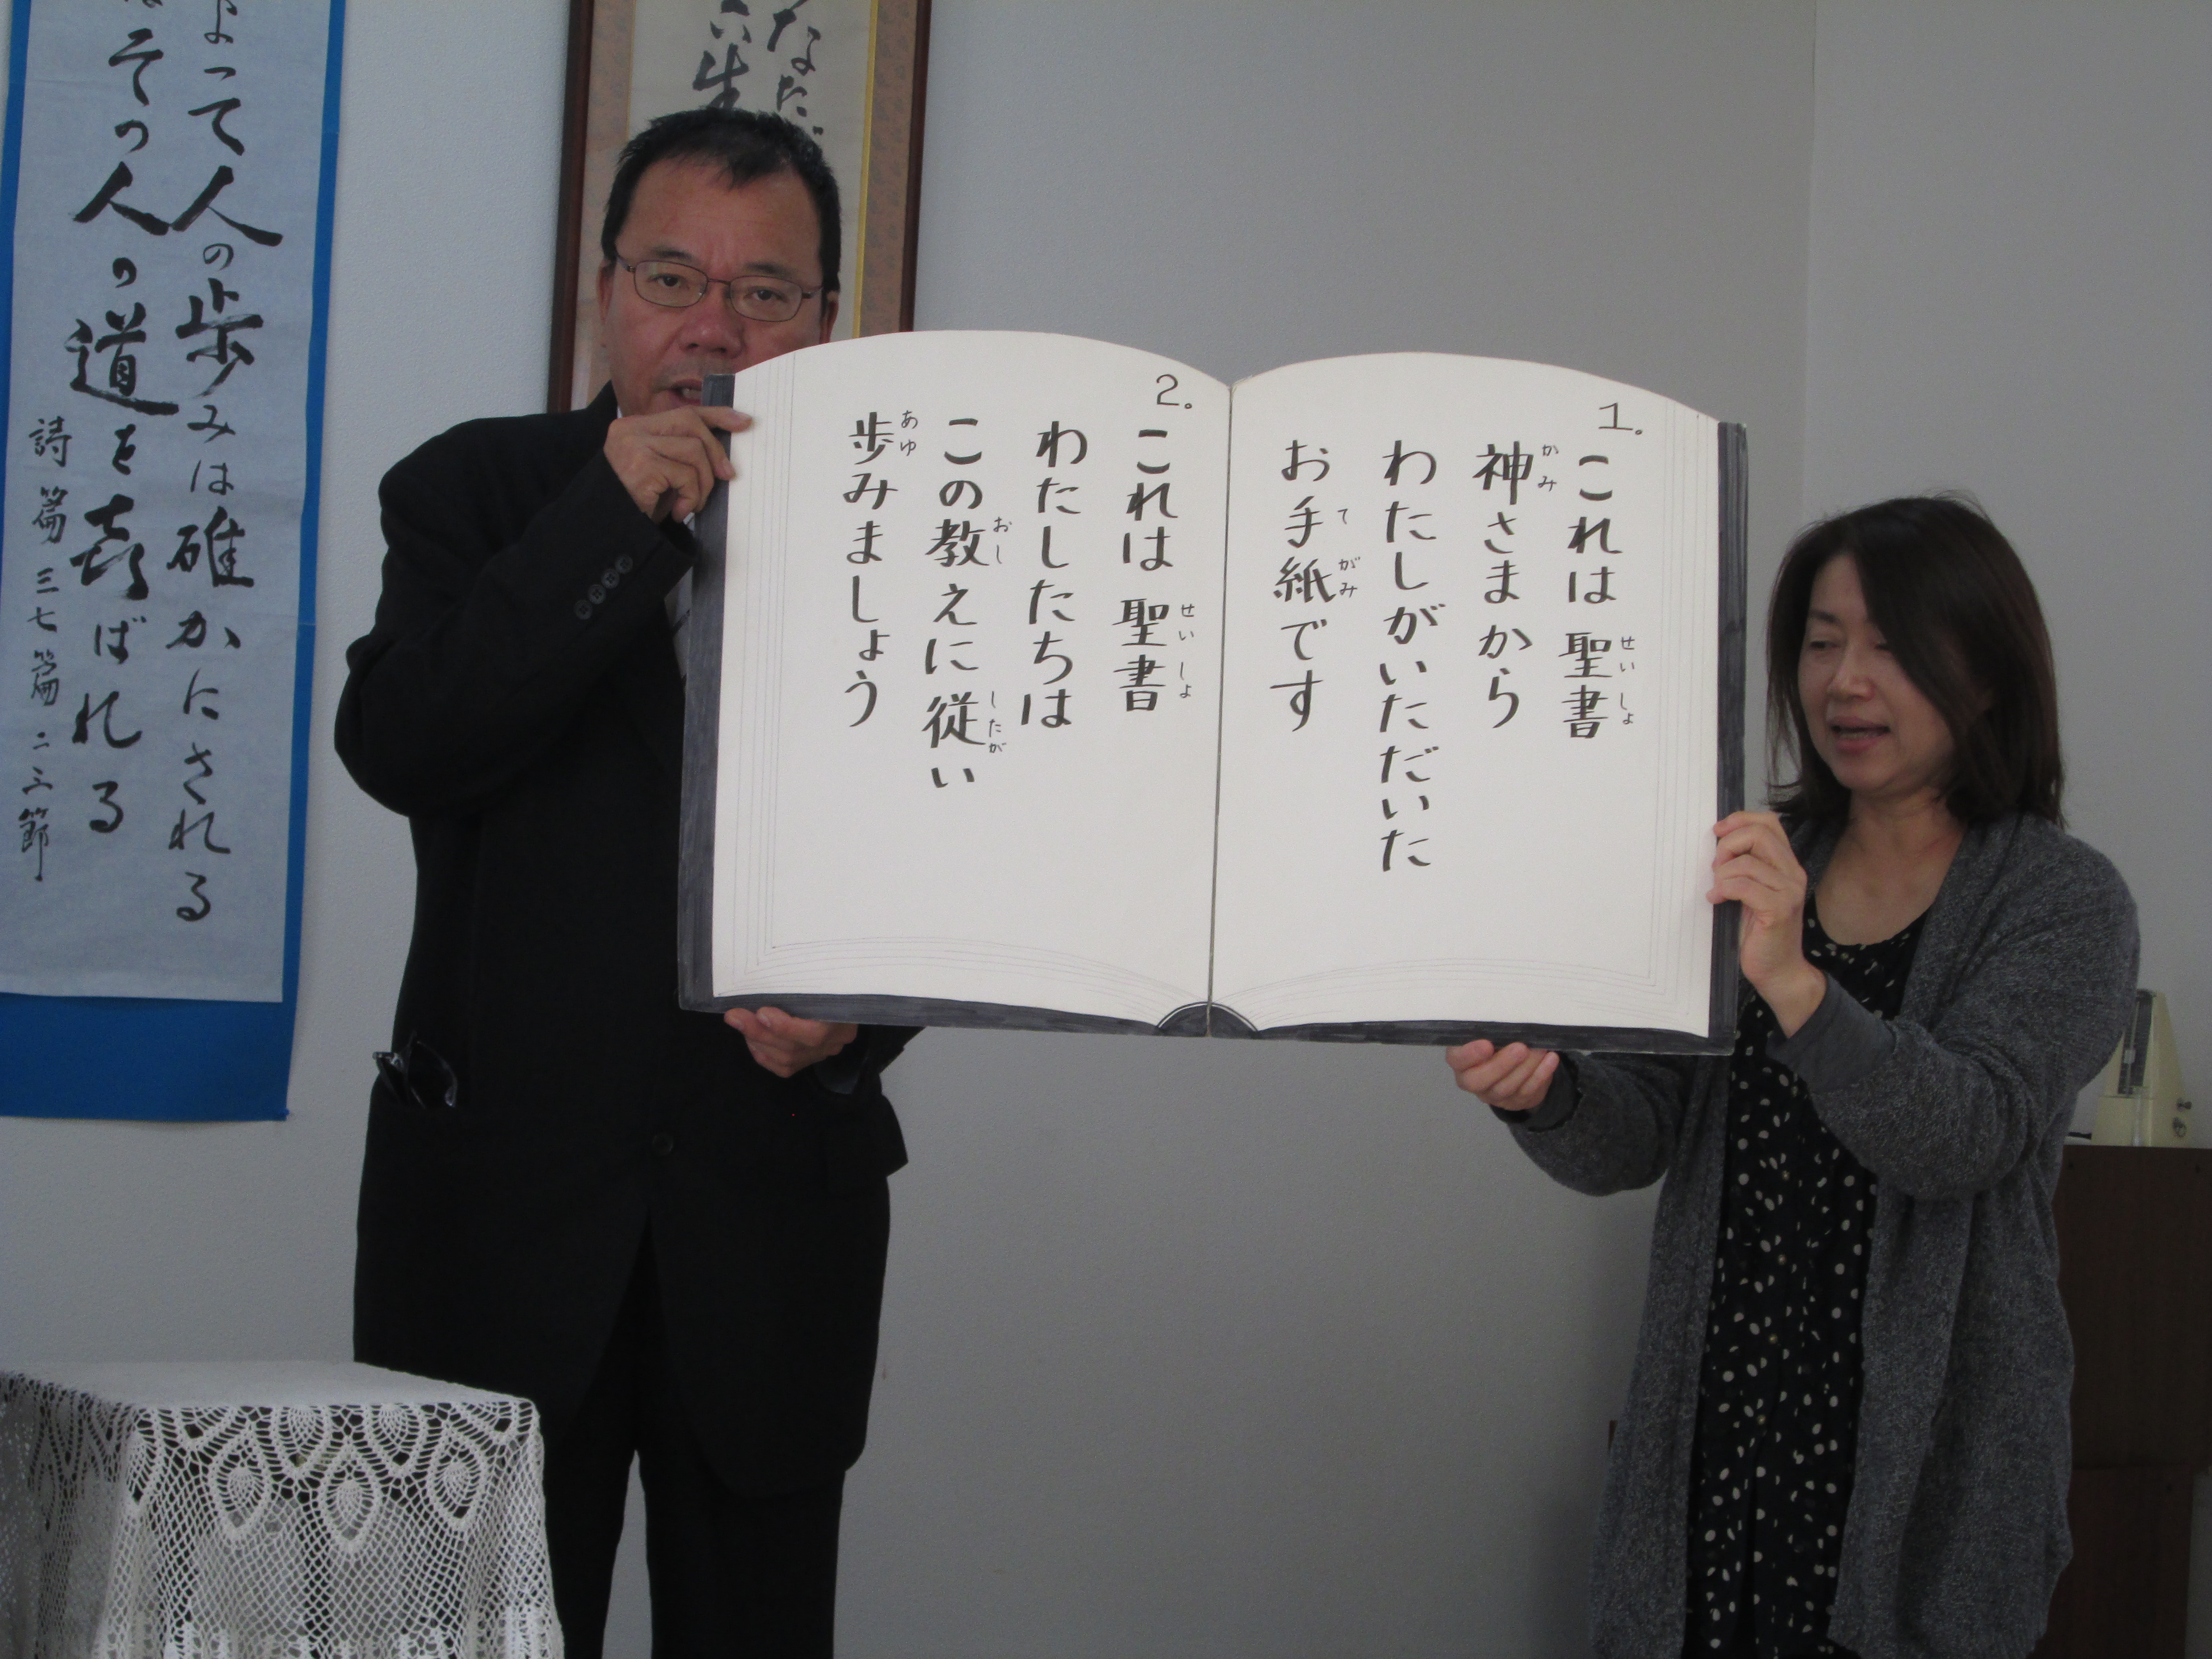 1.
これは 聖書
神さまから
わたしがいただいた
お手紙です
2.
これは 聖書
わたしたちは
この教えに 従い
歩みましょう
せいしょ
かみ
てがみ
せいしょ
おし したが
あゆ
よって人の歩みは確かにされる
その人の道を喜ばれる
詩篇 三七篇 二三節
なただ
生